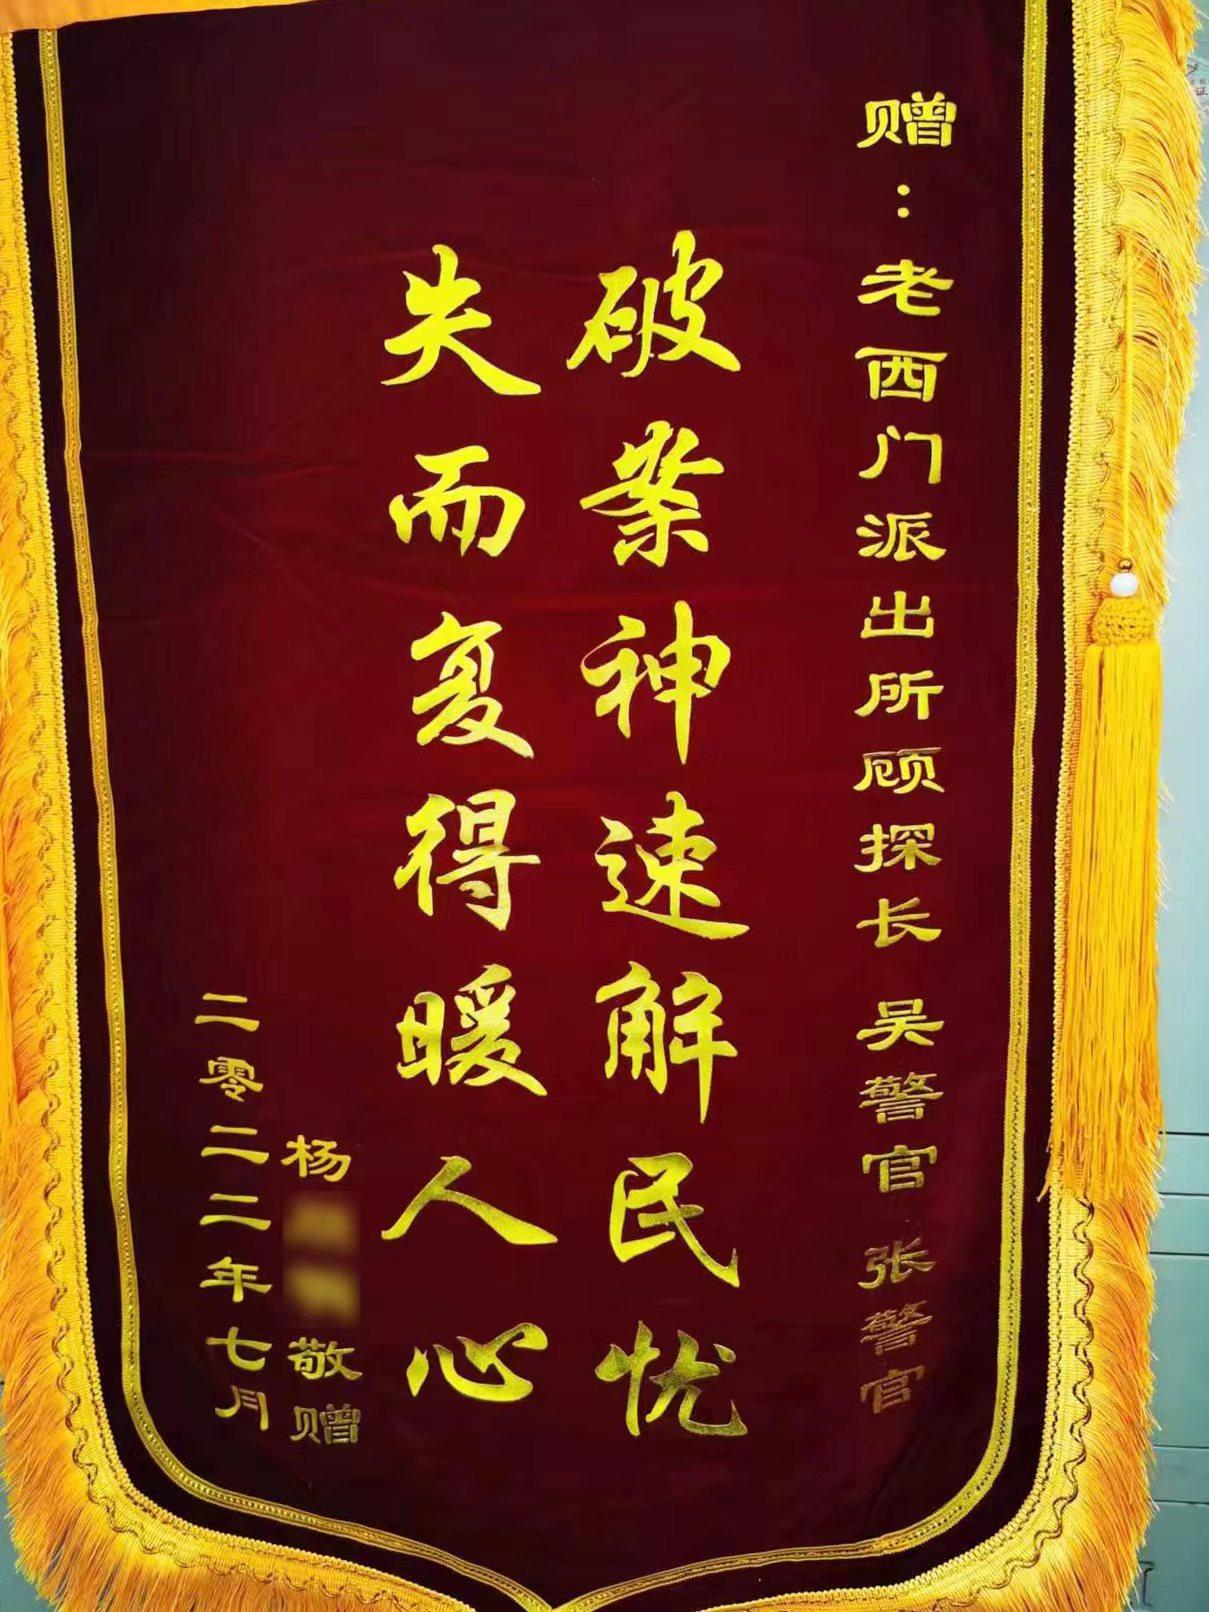 赠：老西门派出所顾探长 吴警官 张警官
破案神速解民忧
失而复得暖人心
杨
敬赠
二零二二年七月
证